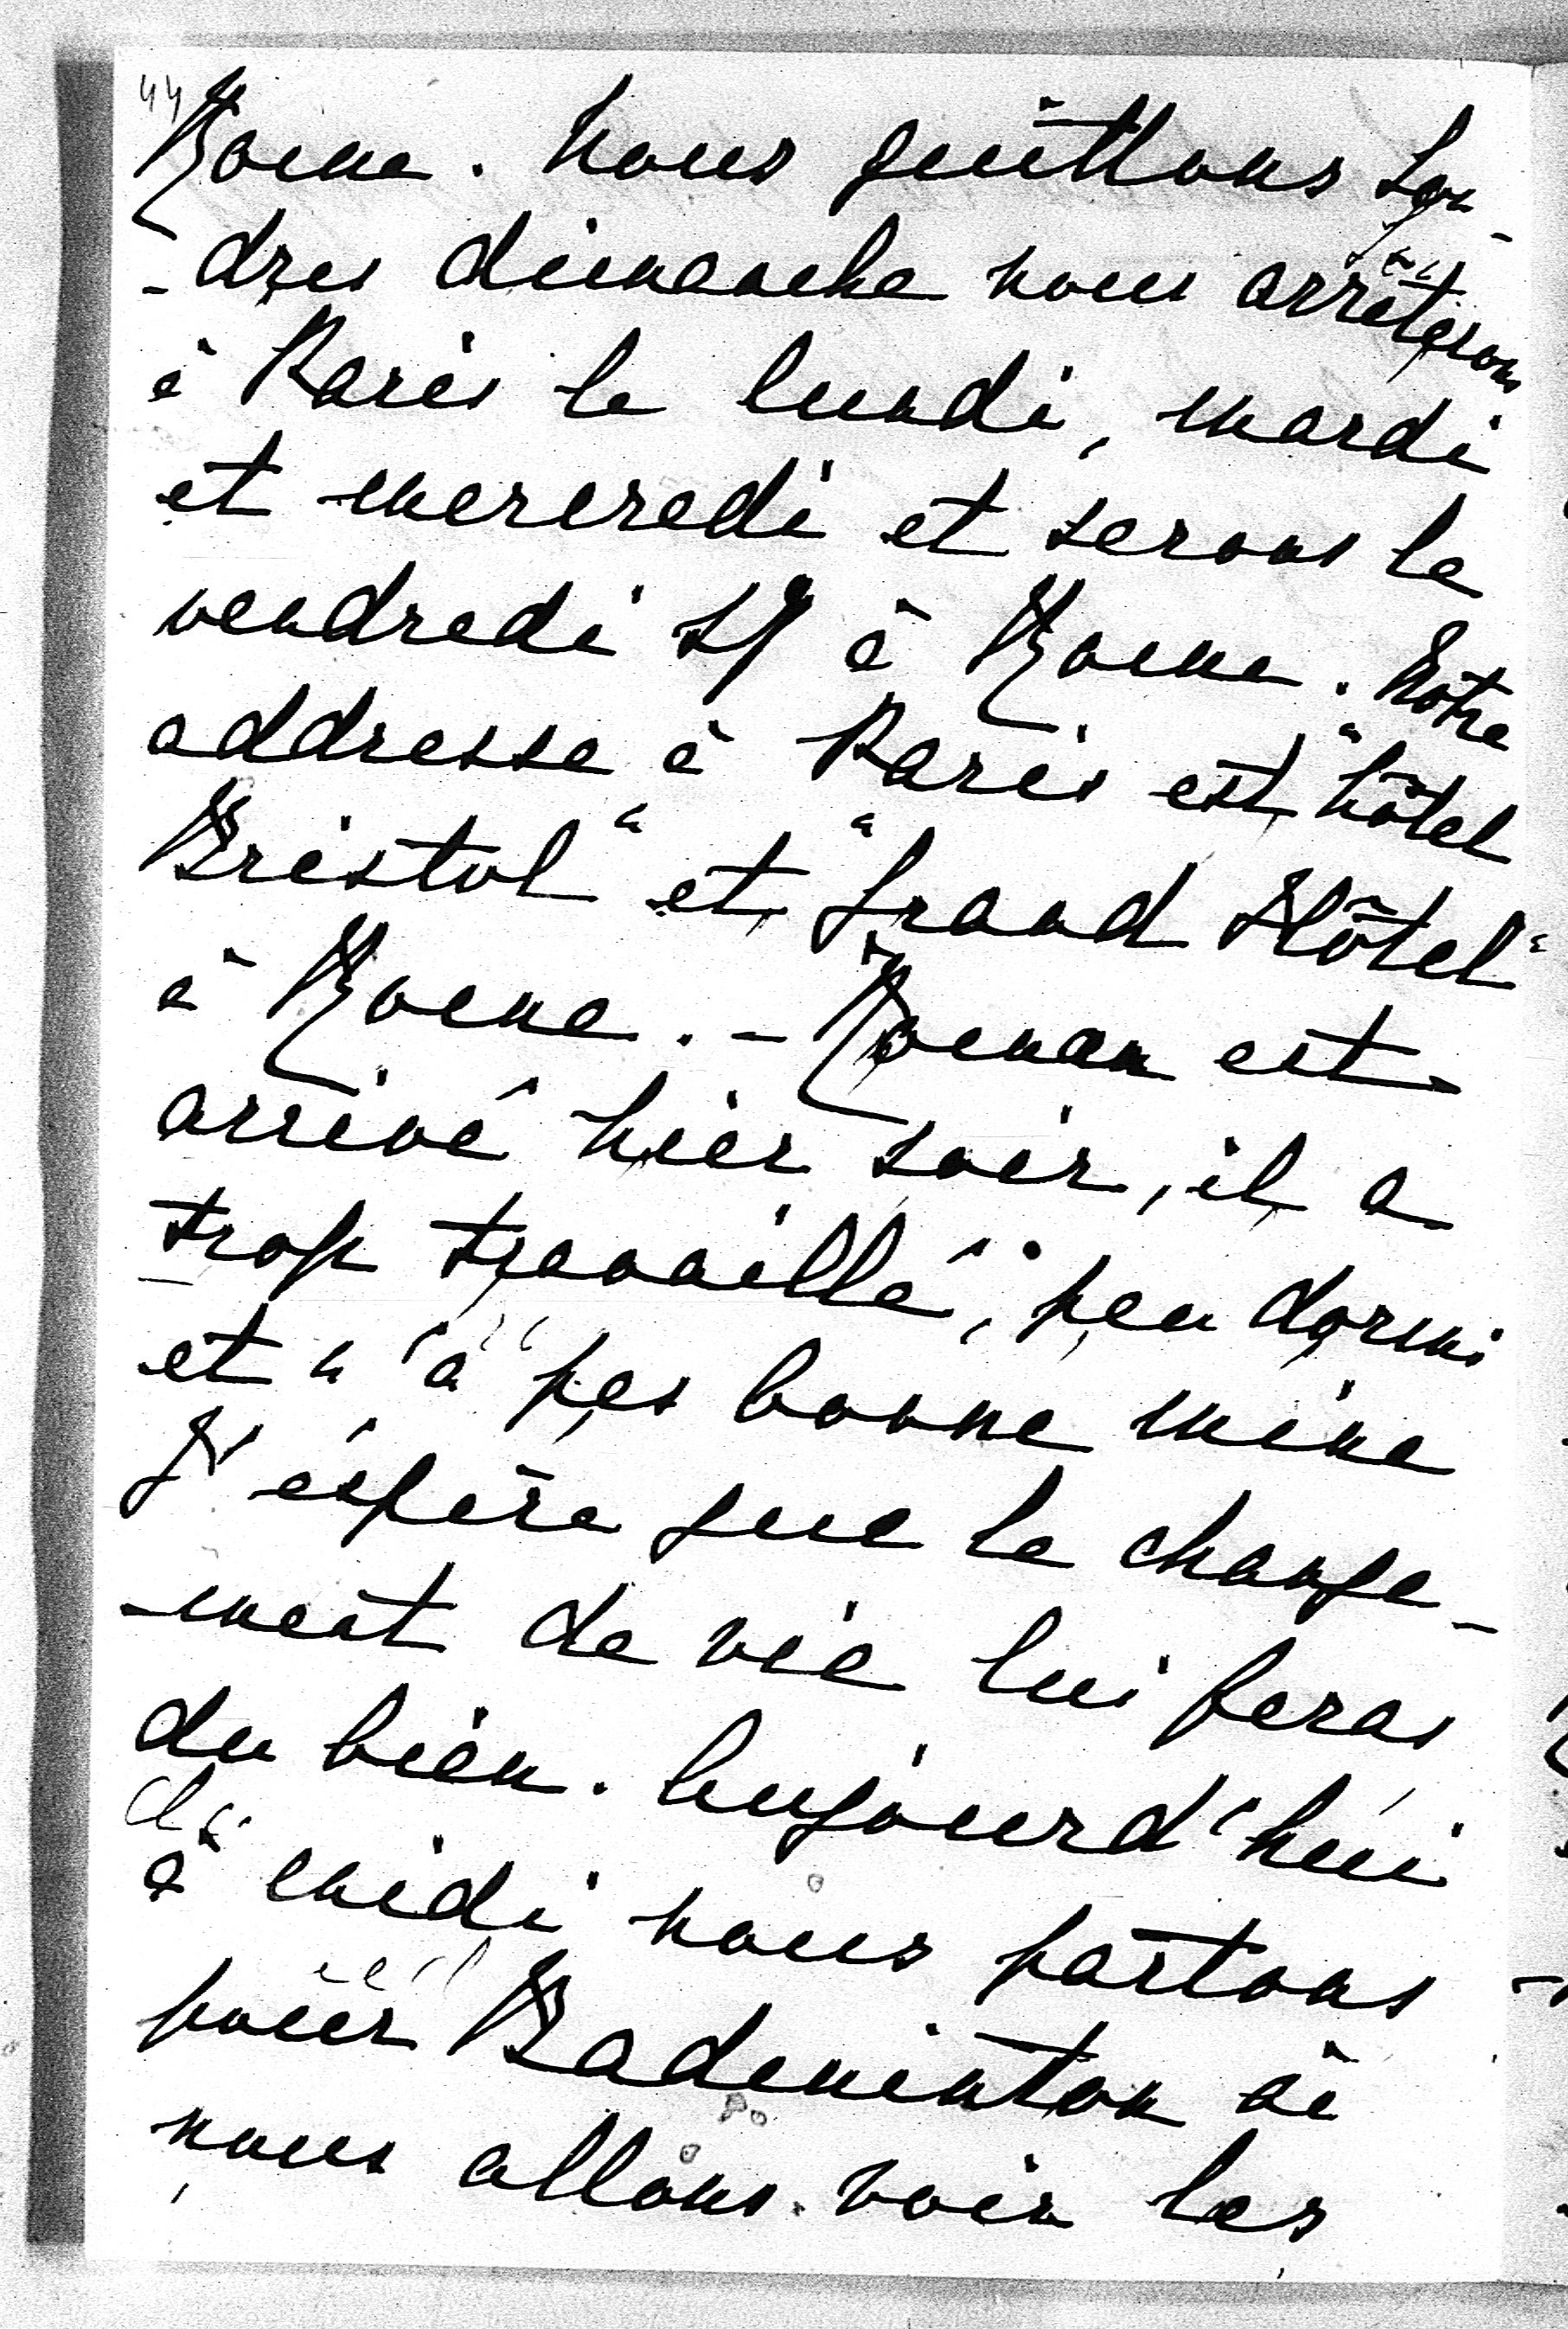 44
Rome. Nous quittons Lon-
-dres dimanche nous arrêterons
à Paris le lundi, mardi
et mercredi et serons le
vendredi à Rome. Notre
addresse à Paris est "hôtel
Bristol" et "Grand Hôtel"
à Rome. - Roman est
arrivé hier soir, il a
trop travaillé, peu dormi
et n'a pas bonne mine
J'espère que le change-
-ment de vie lui feras
du bien. Aujourd'hui
à midi nous partons
pour Badminton où
nous allons voir les